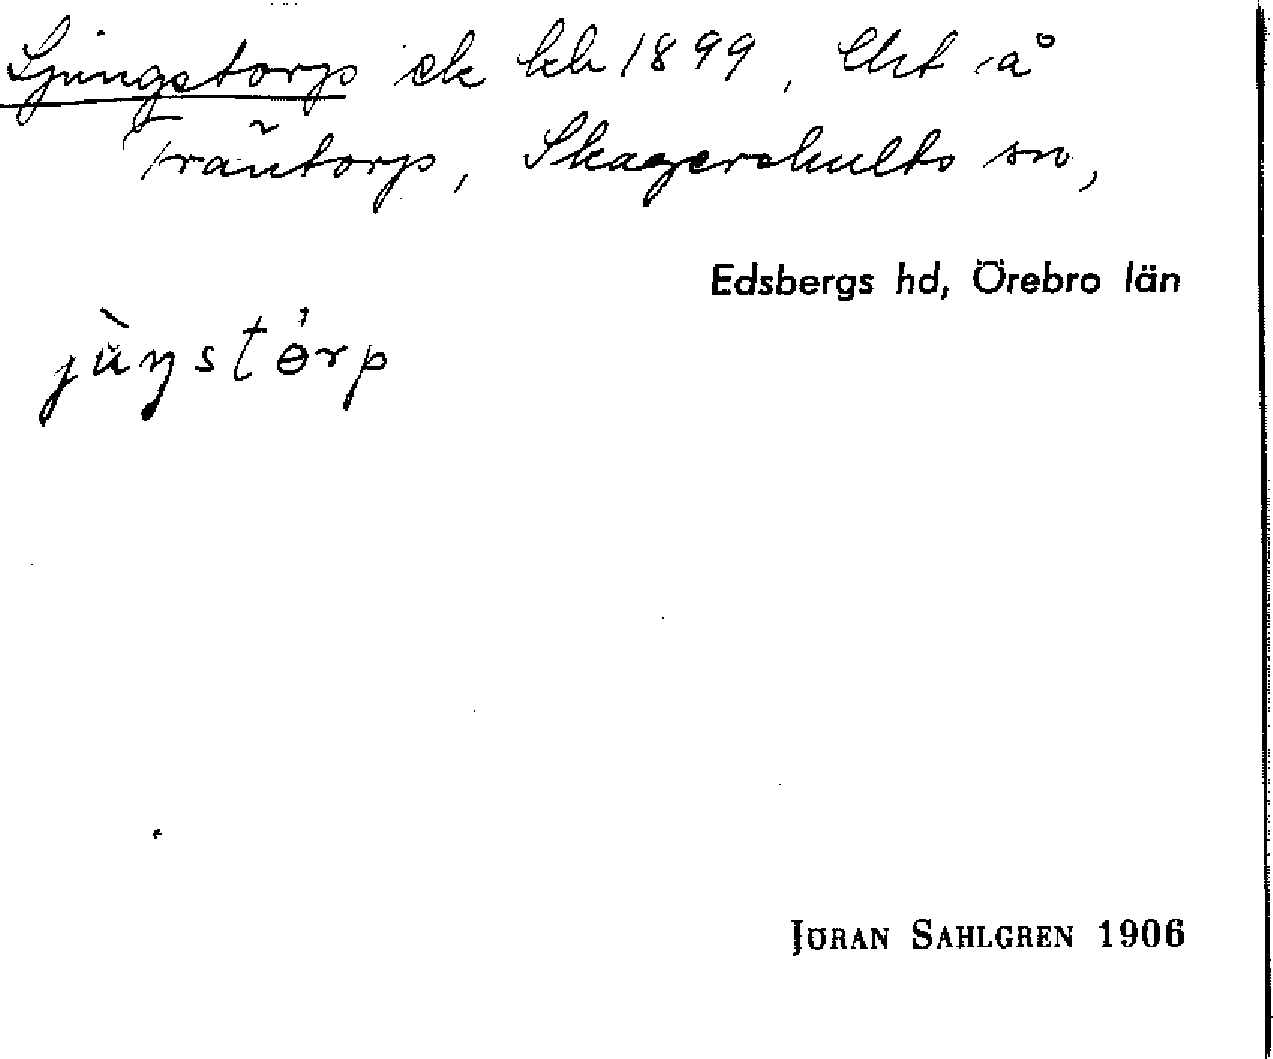 Ljungstorp ek kb 1899, lht å
Trautorp, Skagershults sn,
Edsbergs hd, Örebro län
jùŋstórp
JÖRAN SAHLGREN 1906